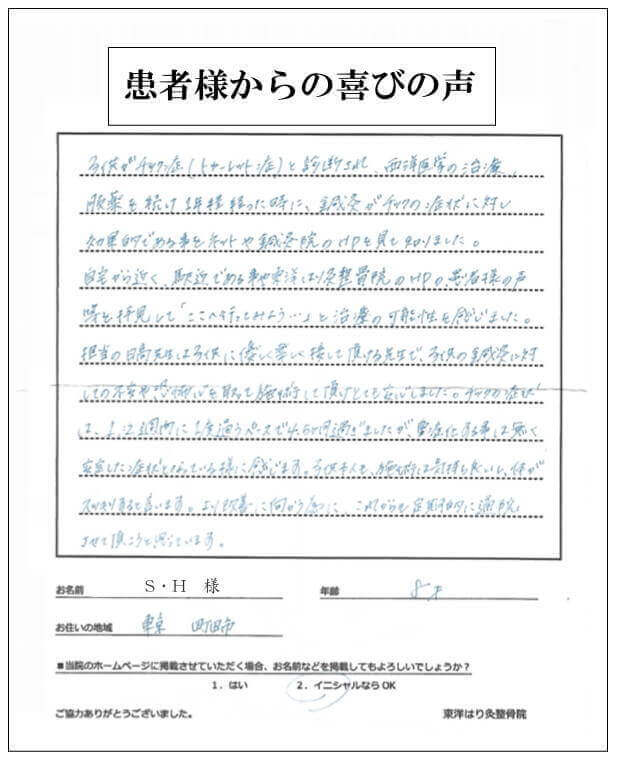 患者様からの喜びの声
子供がチック症(トゥーレット症)と診断され、西洋医学の治療、
服薬を続け1年程経った時に、鍼灸がチックの症状に対し
効果的である事をネットや鍼灸院のHPを見て知りました。
自宅から近く、駅近である事や東洋はり灸整骨院のHPの、患者様の声
等を拝見して「ここへ行ってみよう…」と治療の可能性を感じました。
担当の日高先生は子供に優しく楽しく接して頂ける先生で、子供の鍼灸に対
しての不安や恐怖心を取って施術して頂けとても安心しました。チックの症状
は、1、2週間に1度通うペースで4、5か月過ぎましたが、重症化する事は無く
安定した症状となっている様に感じます。子供本人も、施術は気持ち良いし、体が
スッキリすると言います。より改善に向かう為に、これからも定期的に通院
させて頂こうと思っています。
お名前 S・H 様 年齢 8才
お住いの地域 東京 町田市
■当院のホームページに掲載させていただく場合、お名前などを掲載してもよろしいでしょうか？
1．はい 2．イニシャルなら OK
ご協力ありがとうございました。 東洋はり灸整骨院